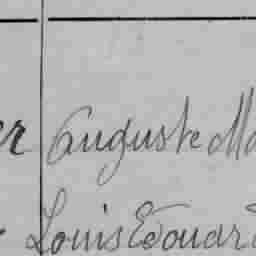 er Auguste Ma
Louis Edouard